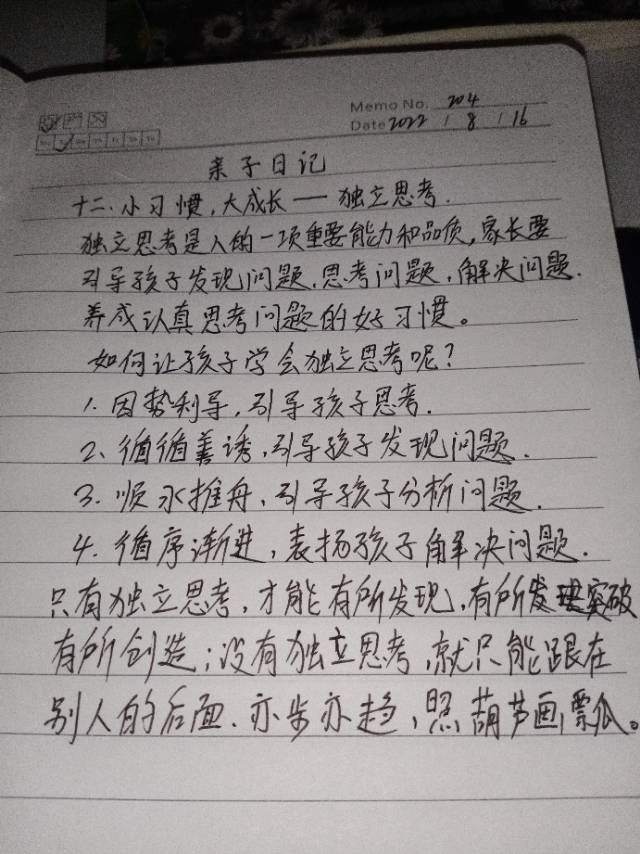 Memo No. 204
Date 2022 / 8 / 16
亲子日记
十二、小习惯,大成长——独立思考.
独立思考是人的一项重要能力和品质,家长要
引导孩子发现问题.思考问题.解决问题.
养成认真思考问题的好习惯。
如何让孩子学会独立思考呢?
1.因势利导,引导孩子思考.
2、循循善诱,引导孩子发现问题.
3.顺水推舟,引导孩子分析问题.
4.循序渐进,表扬孩子解决问题.
只有独立思考,才能有所发现,有所突破
有所创造;没有独立思考,就只能跟在
别人的后面.亦步亦趋,照葫芦画瓢。